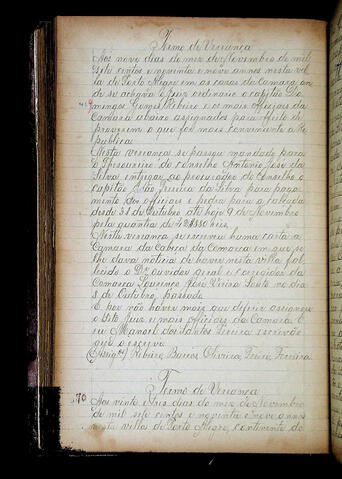 Termo de Veriança
Aos nove dias do mez de Novembro de mil
sete centos e noventa e nove annos nesta vil-
la de Porto Alegre em as casas da Camara on-
de se achava o Juiz ordinario o capitão Do-
mingos Gomes Ribeiro e os mais officiaes da
Camara abaixo assignados para effeito de
proverem o que for mais conveniente a Re
publica.
Nesta veriança se passou mandado para
o Thesoureiro do conselho Antonio José da
Silva entregar ao procurador do Conselho o
capitão João Pereira da Silva para paga
mento dos officiaes e pedra para a calçada
desde 31 de Outubro até hoje 9 de Novembro
pela quantia de
Nesta veriança se escreveu huma carta a
Camara da Cabeça da Comarca em que se
lhe dava noticia de haver nesta villa fal-
lecido o Dr. ouvidor geral e corregidor da
Comarca Lourenço José Vieira Souto no dia
3 de Outubro, passado.
E por não haver mais que deferir assignou
o dito Juiz e mais officiaes da Camara. E
eu Manoel dos Santos Pereira escrivão
que o escrevi.
(Assigdos) Ribeiro, Barros, Oliveira, Ferreira.
Termo de Veriança
70 Aos vinte e tres dias do mez de Novembro
de mil sete centos e noventa e nove annos
nesta villa de Porto Alegre, continente do